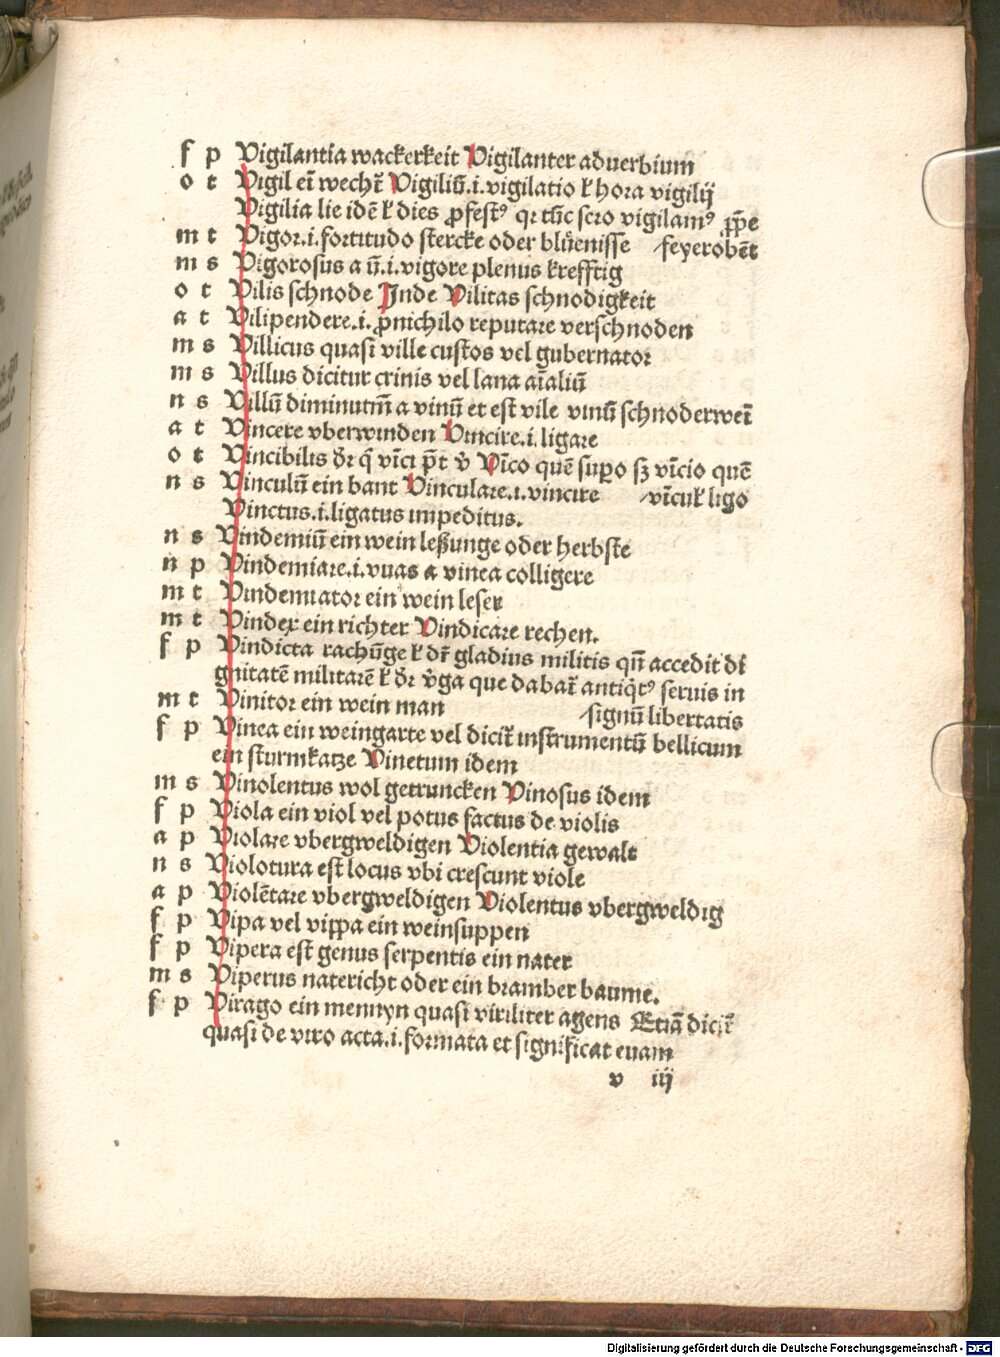 f p Vigilantia wackerkeit Vigilanter aduerbium
o t Vigil eī wecht̄ Vigiliū.i.vigilatio ł hora vigilij
Vigilia lie idē ł dies ꝓfestꝰ qꝛ tūc sero vigilamꝰ ꝓpe
m t Vigoꝛ.i.foꝛtitudo stercke oder blüenisse feyerobēt
m s Vigoꝛosus a ū.i.vigoꝛe plenus krefftig
o t Vilis schnode Inde Vilitas schnodigkeit
a t Vilipendere.i.ꝓnichilo reputaꝛe verschnoden
m s Villicus quasi ville custos vel gubernatoꝛ
m s Villus dicitur crinis vel lana aīaliū
n s Villū diminutm̄ a vinū et est vile vinū schnoderweī
a t Vincere vberwinden Vincire.i.ligare
o t Vincibilis dr̄ q̄ vīci p̄t v̄ Vīco quē suꝑo sꝫ vīcio quē
n s Vinculū ein bant Vinculaꝛe.i.vincire vīcuł ligo
Vinctus.i.ligatus impeditus.
n s Vindemiū ein wein leßunge oder herbste
n p Vindemiaꝛe.i.vuas a vinea colligere
m t Vindemiatoꝛ ein wein leser
m t Vindex ein richter Vindicaꝛe rechen.
f p Vindicta rachūge ł dr̄ gladius militis qn̄ accedit di
gnitatē militarē ł dr̄ v̄ga que dabat̄ antiq̇tꝰ seruis in
m t Vinitoꝛ ein wein man signū libertatis
f p Vinea ein weingarte vel dicit̄ instrumentū bellicum
ein sturmkatze Vinetum idem
m s Vinolentus wol getruncken Vinosus idem
f p Viola ein viol vel potus factus de violis
a p Violaꝛe vbergweldigen Violentia gewalt
n s Violotura est locus vbi crescunt viole
a p Violētaꝛe vbergweldigen Violentus vbergweldig
f p Vipa vel vippa ein weinsuppen
f p Vipera est genus serpentis ein nater
m s Viperus natericht oder ein bramber baume.
f p Virago ein mennyn quasi viriliter agens Etiā dicit̄
quasi de viro acta.i.foꝛmata et significat euam
v iij
Digitalisierung gefördert durch die Deutsche Forschungsgemeinschaft - DFG